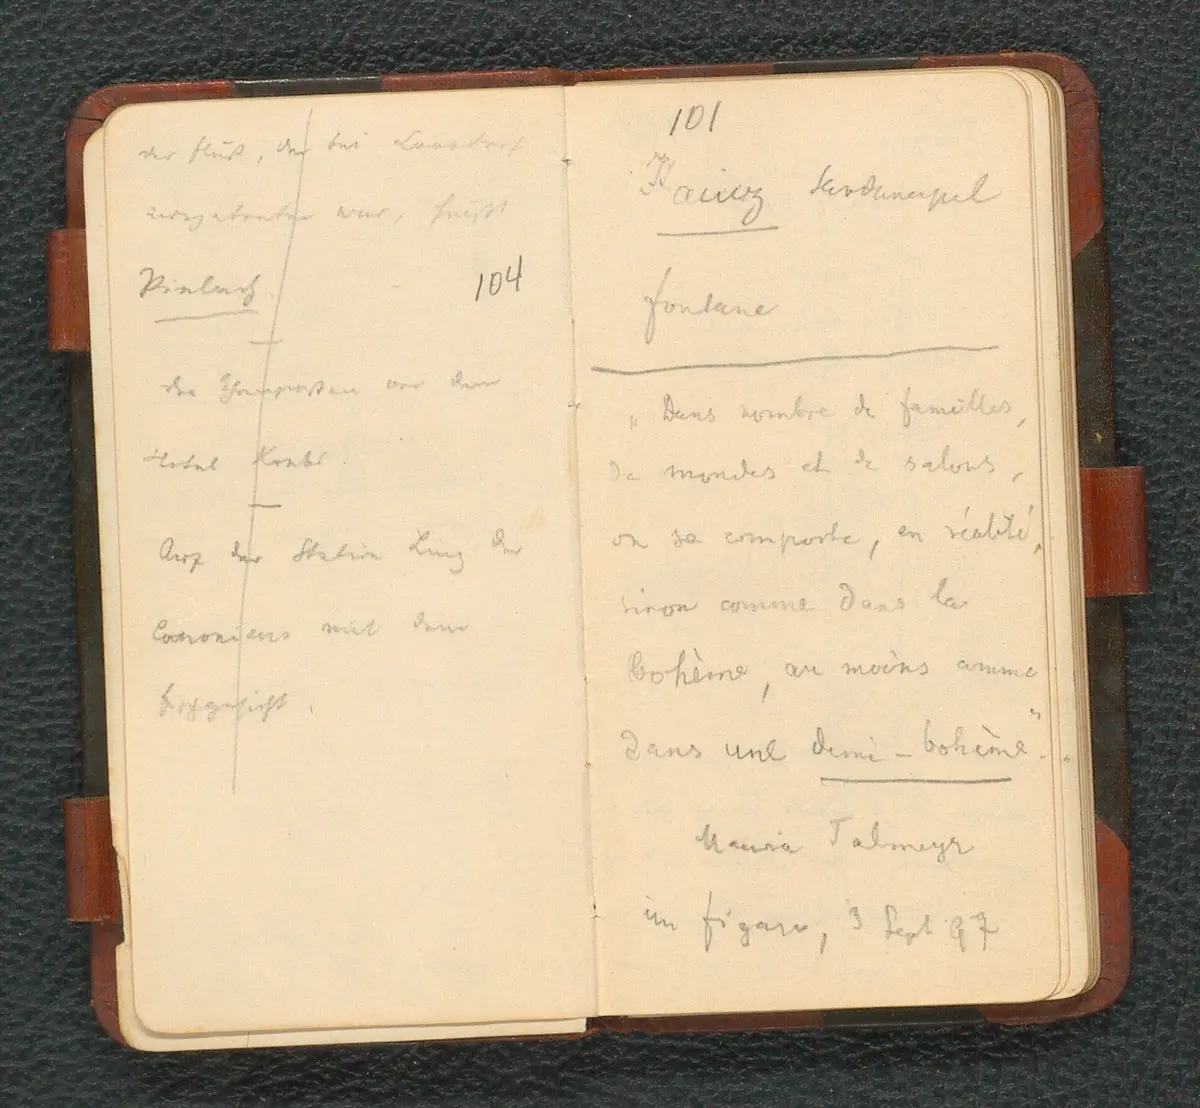 der Fluß, der bei
ausgetreten war, heißt
104
der vor dem
Hotel
Auf der Station Linz der
mit dem
101
Kainz Sardanapal
Fontane
„Dans nombre de familles,
de mondes et de salons,
on se comporte, en réalité,
sinon comme dans la
bohème, au moins comme
dans une demi-bohème".
Talmeyr
im Figaro, 3 Sept 97